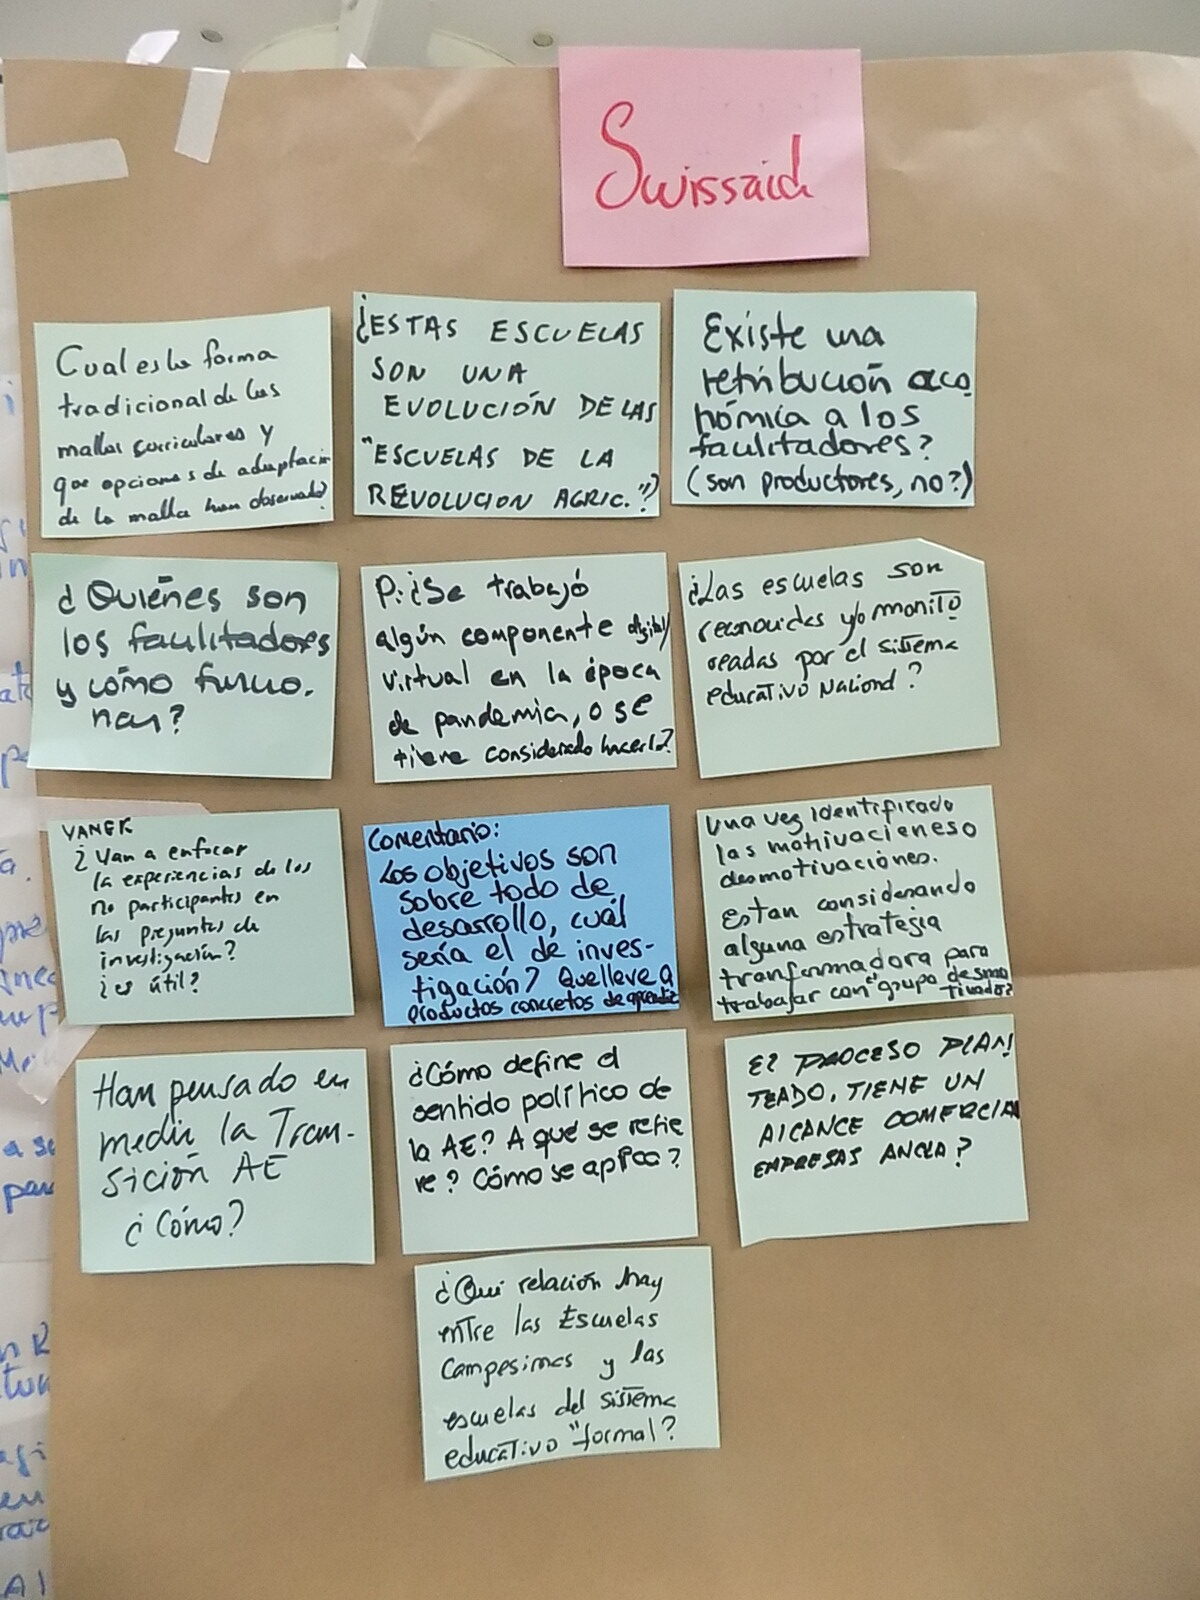 Swissaid
Cual es la forma
tradicional de las
mallas curriculares y
que opciones de adaptación
de la malla han observado?
¿ESTAS ESCUELAS
SON UNA
EVOLUCIÓN DE LAS
"ESCUELAS DE LA
REVOLUCION AGRIC."?
Existe una
retribución eco
nómica a los
facilitadores?
(son productores, no?)
¿Quiénes son
los facilitadores
y cómo funcio.
nan?
P: ¿Se trabajó
algún componente digital/
virtual en la época
de pandemia, o se
tiene considerado hacerlo?
¿Las escuelas son
reconocidas y/o monito
readas por el sistema
educativo Nacional?
YANEK
¿Van a enfocar
la experiencias de los
no participantes en
las preguntas de
investigación?
¿es útil?
Comentario:
Los objetivos son
sobre todo de
desarrollo, cuál
sería el de inves-
tigación? Que lleve a
productos concretos de aprendiz
Una vez identificado
las motivaciones o
desmotivaciones.
Estan considerando
alguna estrategia
tranformadora para
trabajar con "grupo desmo
tivado?
Han pensado en
medir la Tran-
sición AE
¿Cómo?
¿Cómo define el
sentido político de
la AE? A qué se refie
re? Cómo se aplica?
El PROCESO PLAN
TEADO, TIENE UN
ALCANCE COMERCIAL
EMPRESAS ANCLA?
¿Qué relación hay
entre las Escuelas
Campesinas y las
escuelas del sistema
educativo "formal?